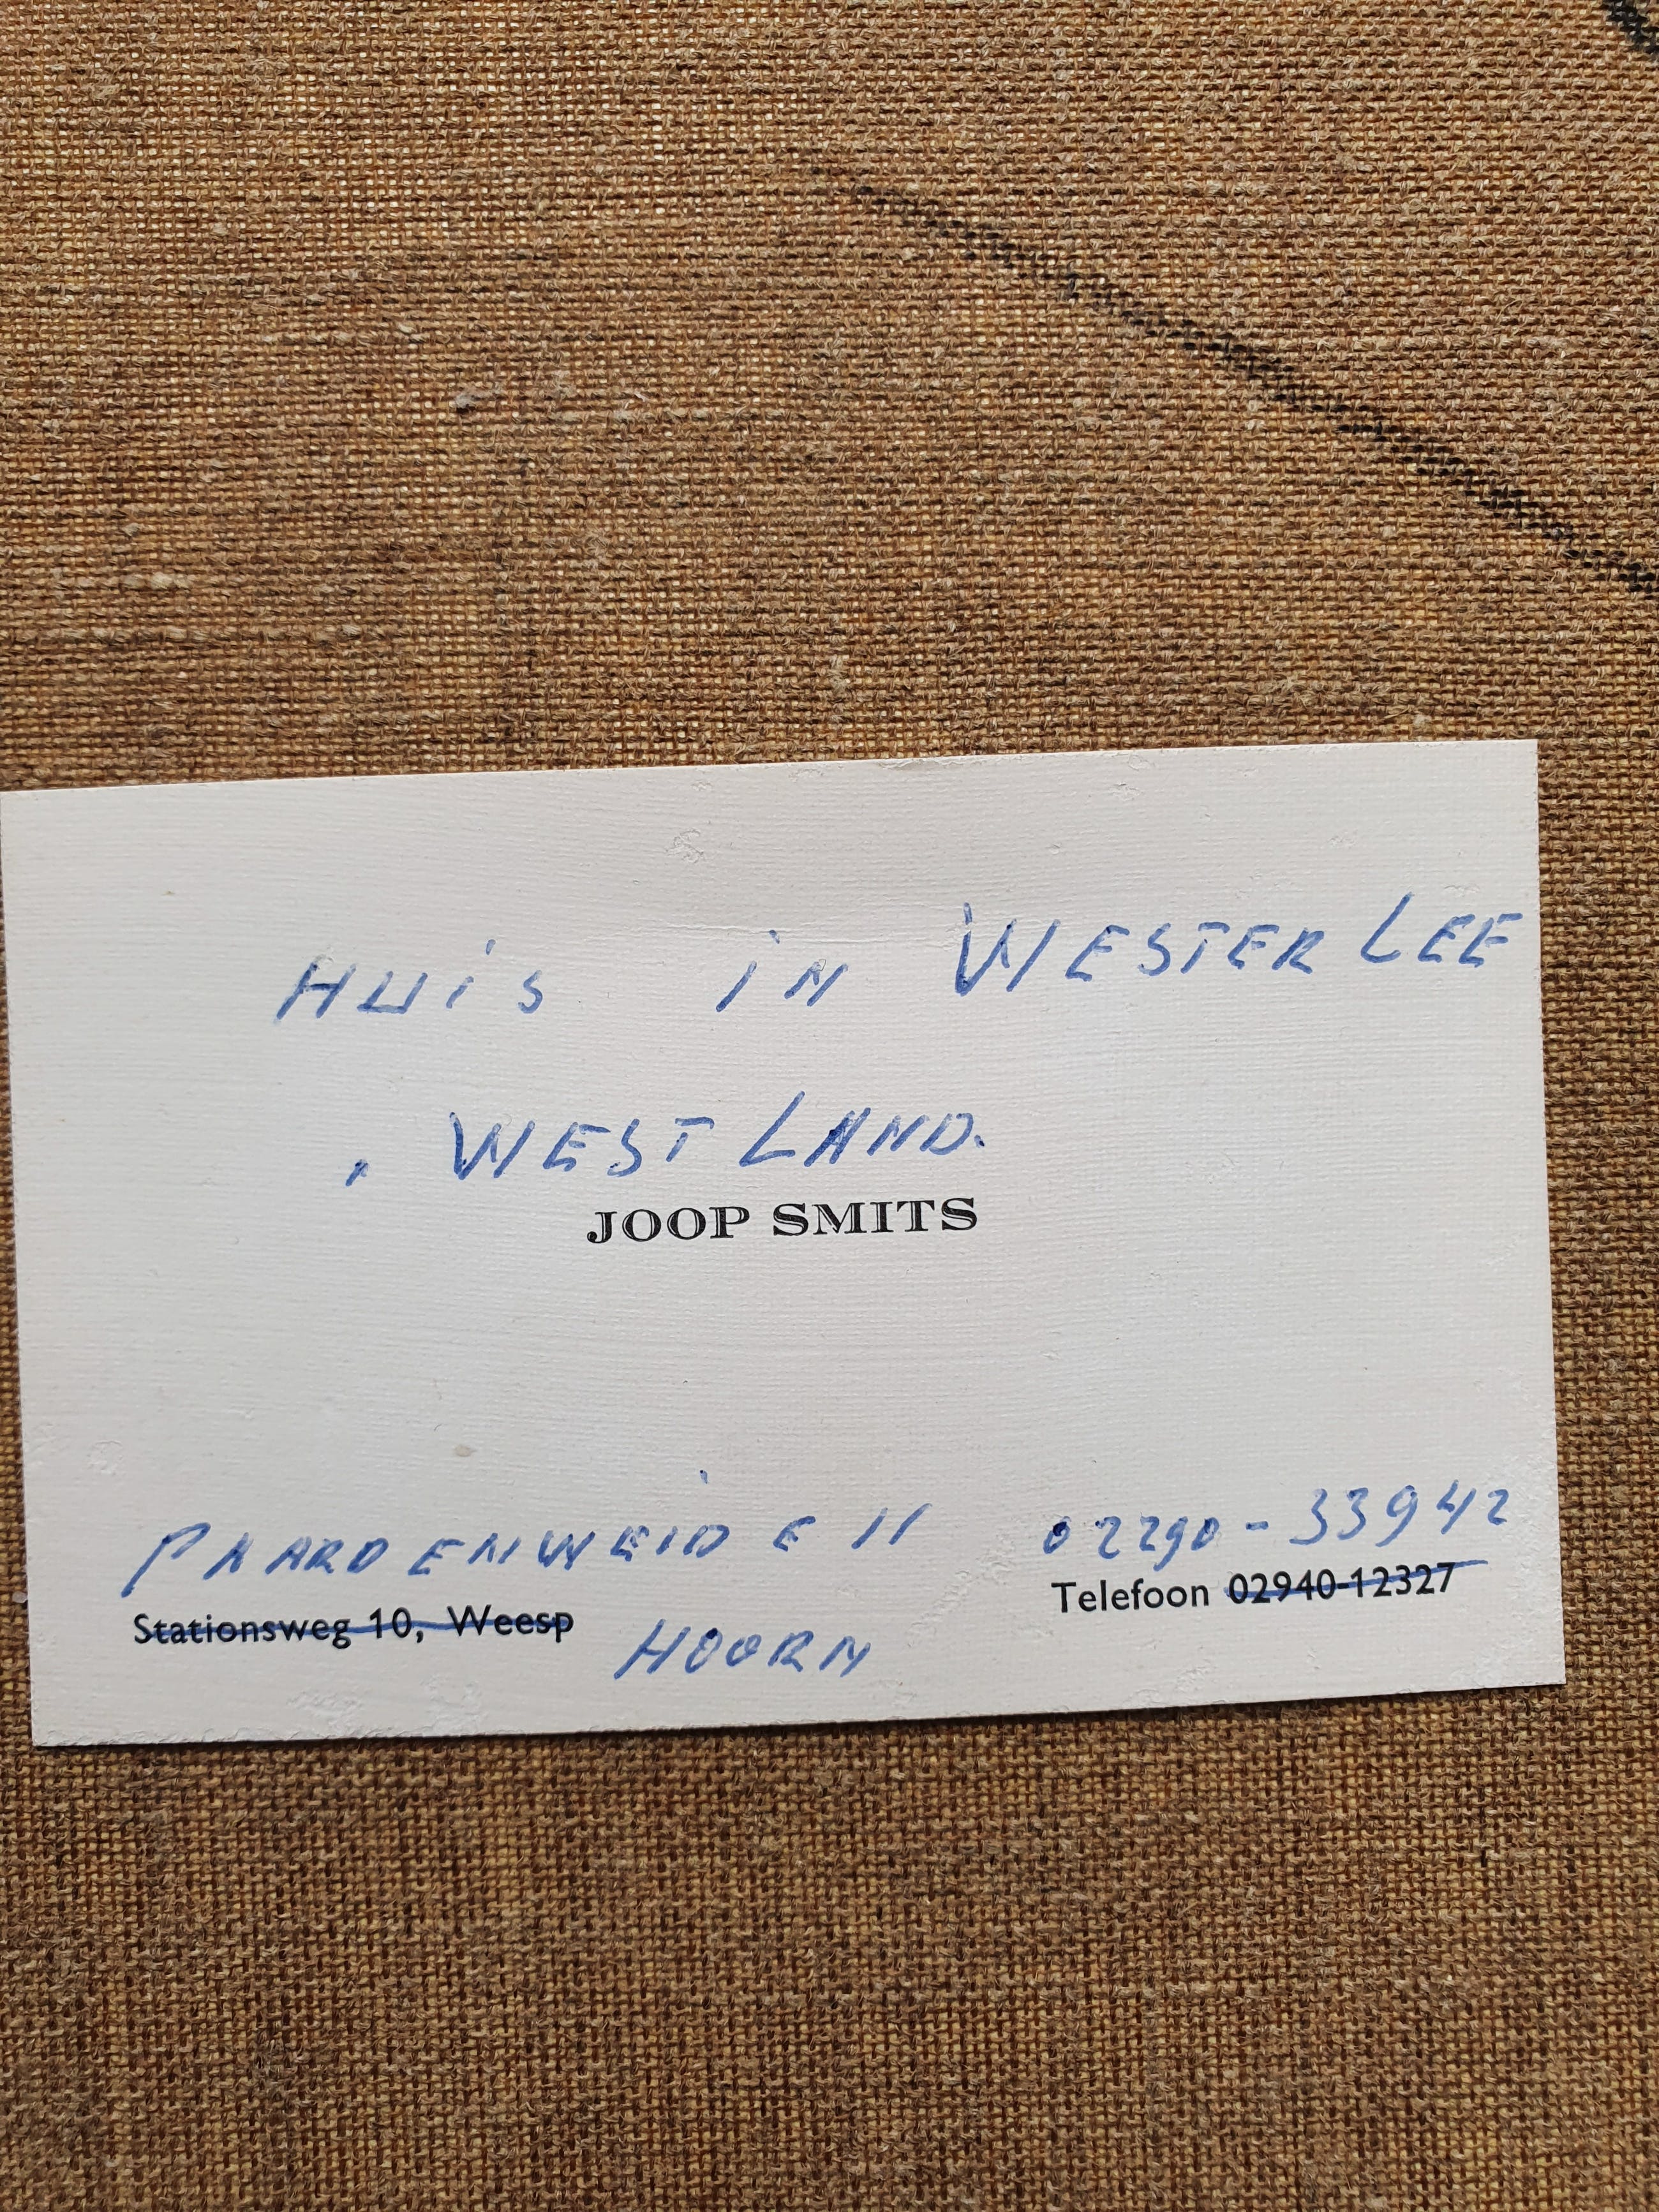 HUiS iN WESTERLEE
, WESTLAND.
JOOP SMITS
PAARDENWEIDE 11 02290-33942
Stationsweg 10, Weesp Telefoon 02940-12327
HOORN